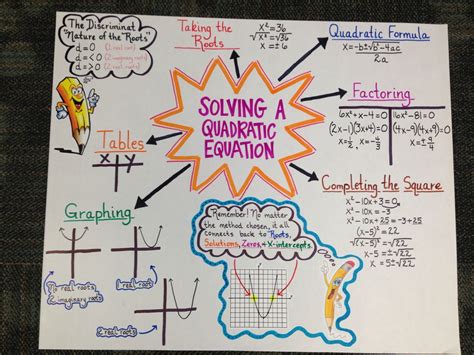 The Discriminat
"Nature of the Roots"
d = 0 (1 real root)
d = < 0 (2 imaginary roots)
d = > 0 (2 real roots)
Taking the
Roots
x² = 36
√x² = √36
x = ± 6
Quadratic Formula
x = -b±√b²-4ac
2a
SOLVING A
QUADRATIC
EQUATION
Factoring
6x²+x-4=0
(2x-1)(3x+4)=0
x=1/2, x=-4/3
16x²-81=0
(4x-9)(4x+9)=0
x=±9/4
Tables
x y
Completing the Square
x²-10x+3=0
x²-10x =-3
x²-10x+25=-3+25
(x-5)²=22
√(x-5)²=√22
x-5=±√22
x=5±√22
Graphing
No real roots
2 imaginary roots
1 real root
2 real roots
Remember! No matter
the method chosen, it all
connects back to Roots,
Solutions, Zeros, & X-intercepts.